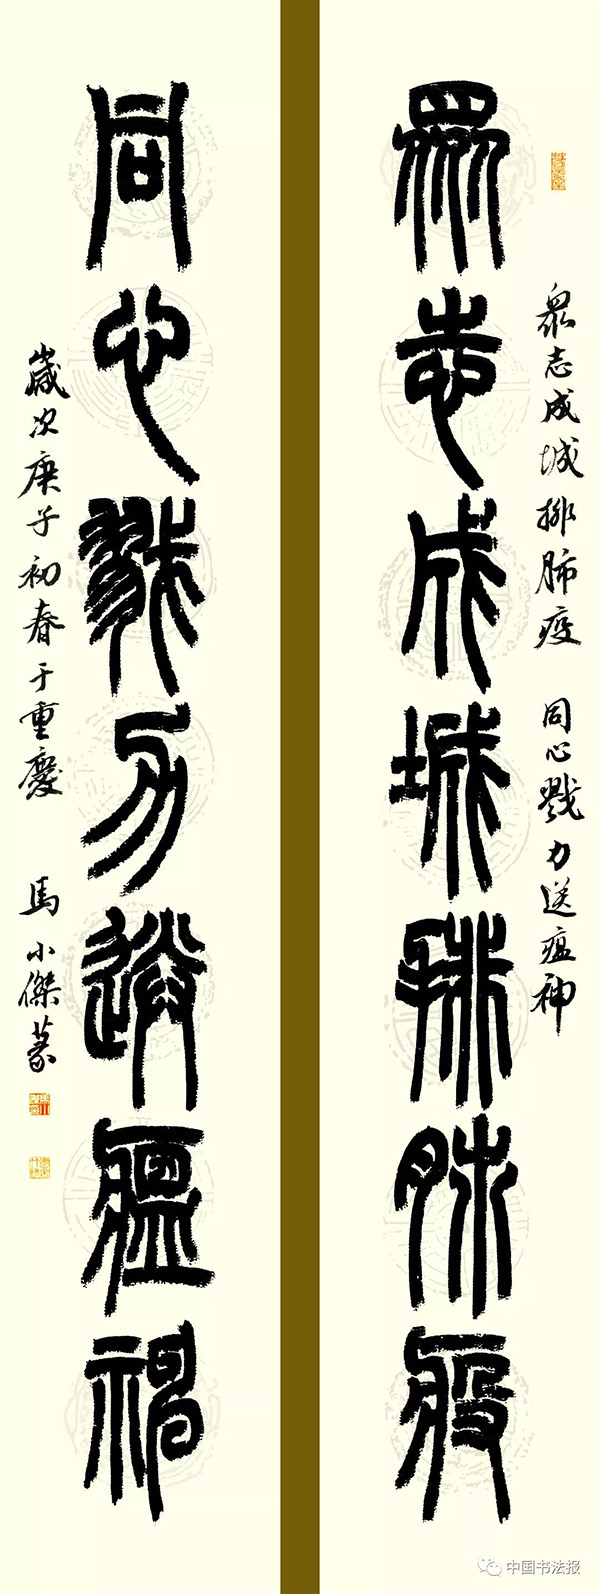 眾志成城排肺疫
眾志成城排肺疫 同心戮力送瘟神
同心戮力送瘟神
歲次庚子初春于重慶 馬小傑篆
中国书法报